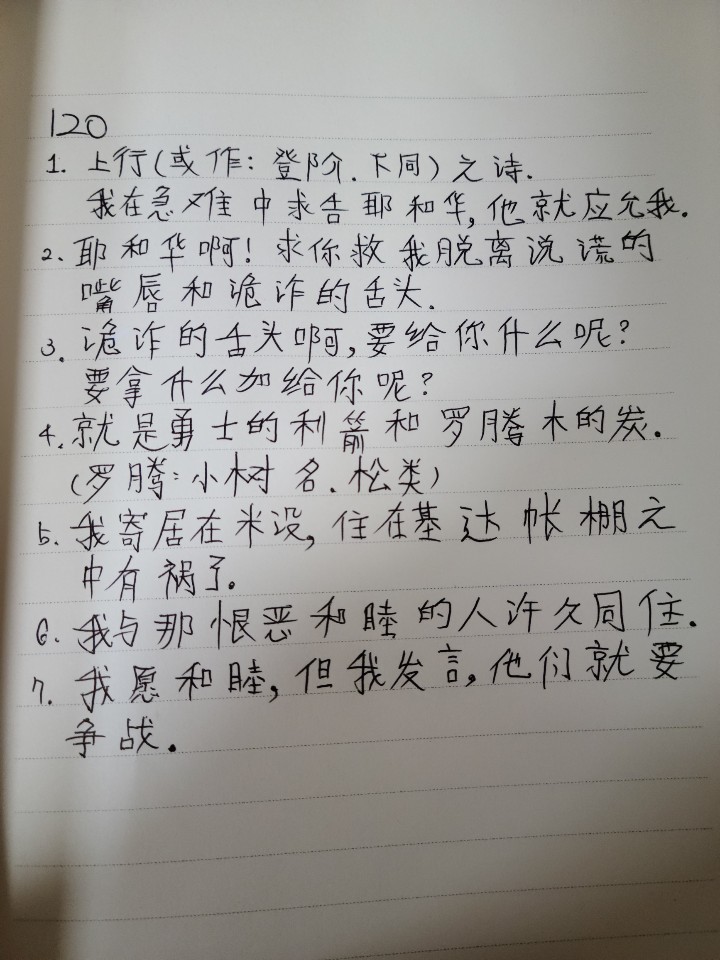 120
1. 上行(或作: 登阶. 下同) 之诗.
我在急难中求告耶和华, 他就应允我.
2. 耶和华啊! 求你救我脱离说谎的
嘴唇和诡诈的舌头.
3. 诡诈的舌头啊, 要给你什么呢?
要拿什么加给你呢?
4. 就是勇士的利箭和罗腾木的炭.
(罗腾: 小树名. 松类)
5. 我寄居在米设, 住在基达帐棚之
中有祸了.
6. 我与那恨恶和睦的人许久同住.
7. 我愿和睦, 但我发言, 他们就要
争战.